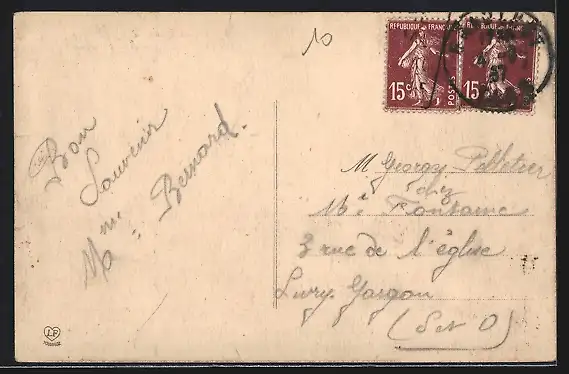 10
REPUBLIQUE FRANÇAISE
15c POSTES
REPUBLIQUE FRANÇAISE
15c POSTES
37
Bon
Souvenir
Mme Bernard.
M Georges Pelletier
chez
Me Fontaine
3 rue de l'église
Livry Gargan
(S et O)
LF